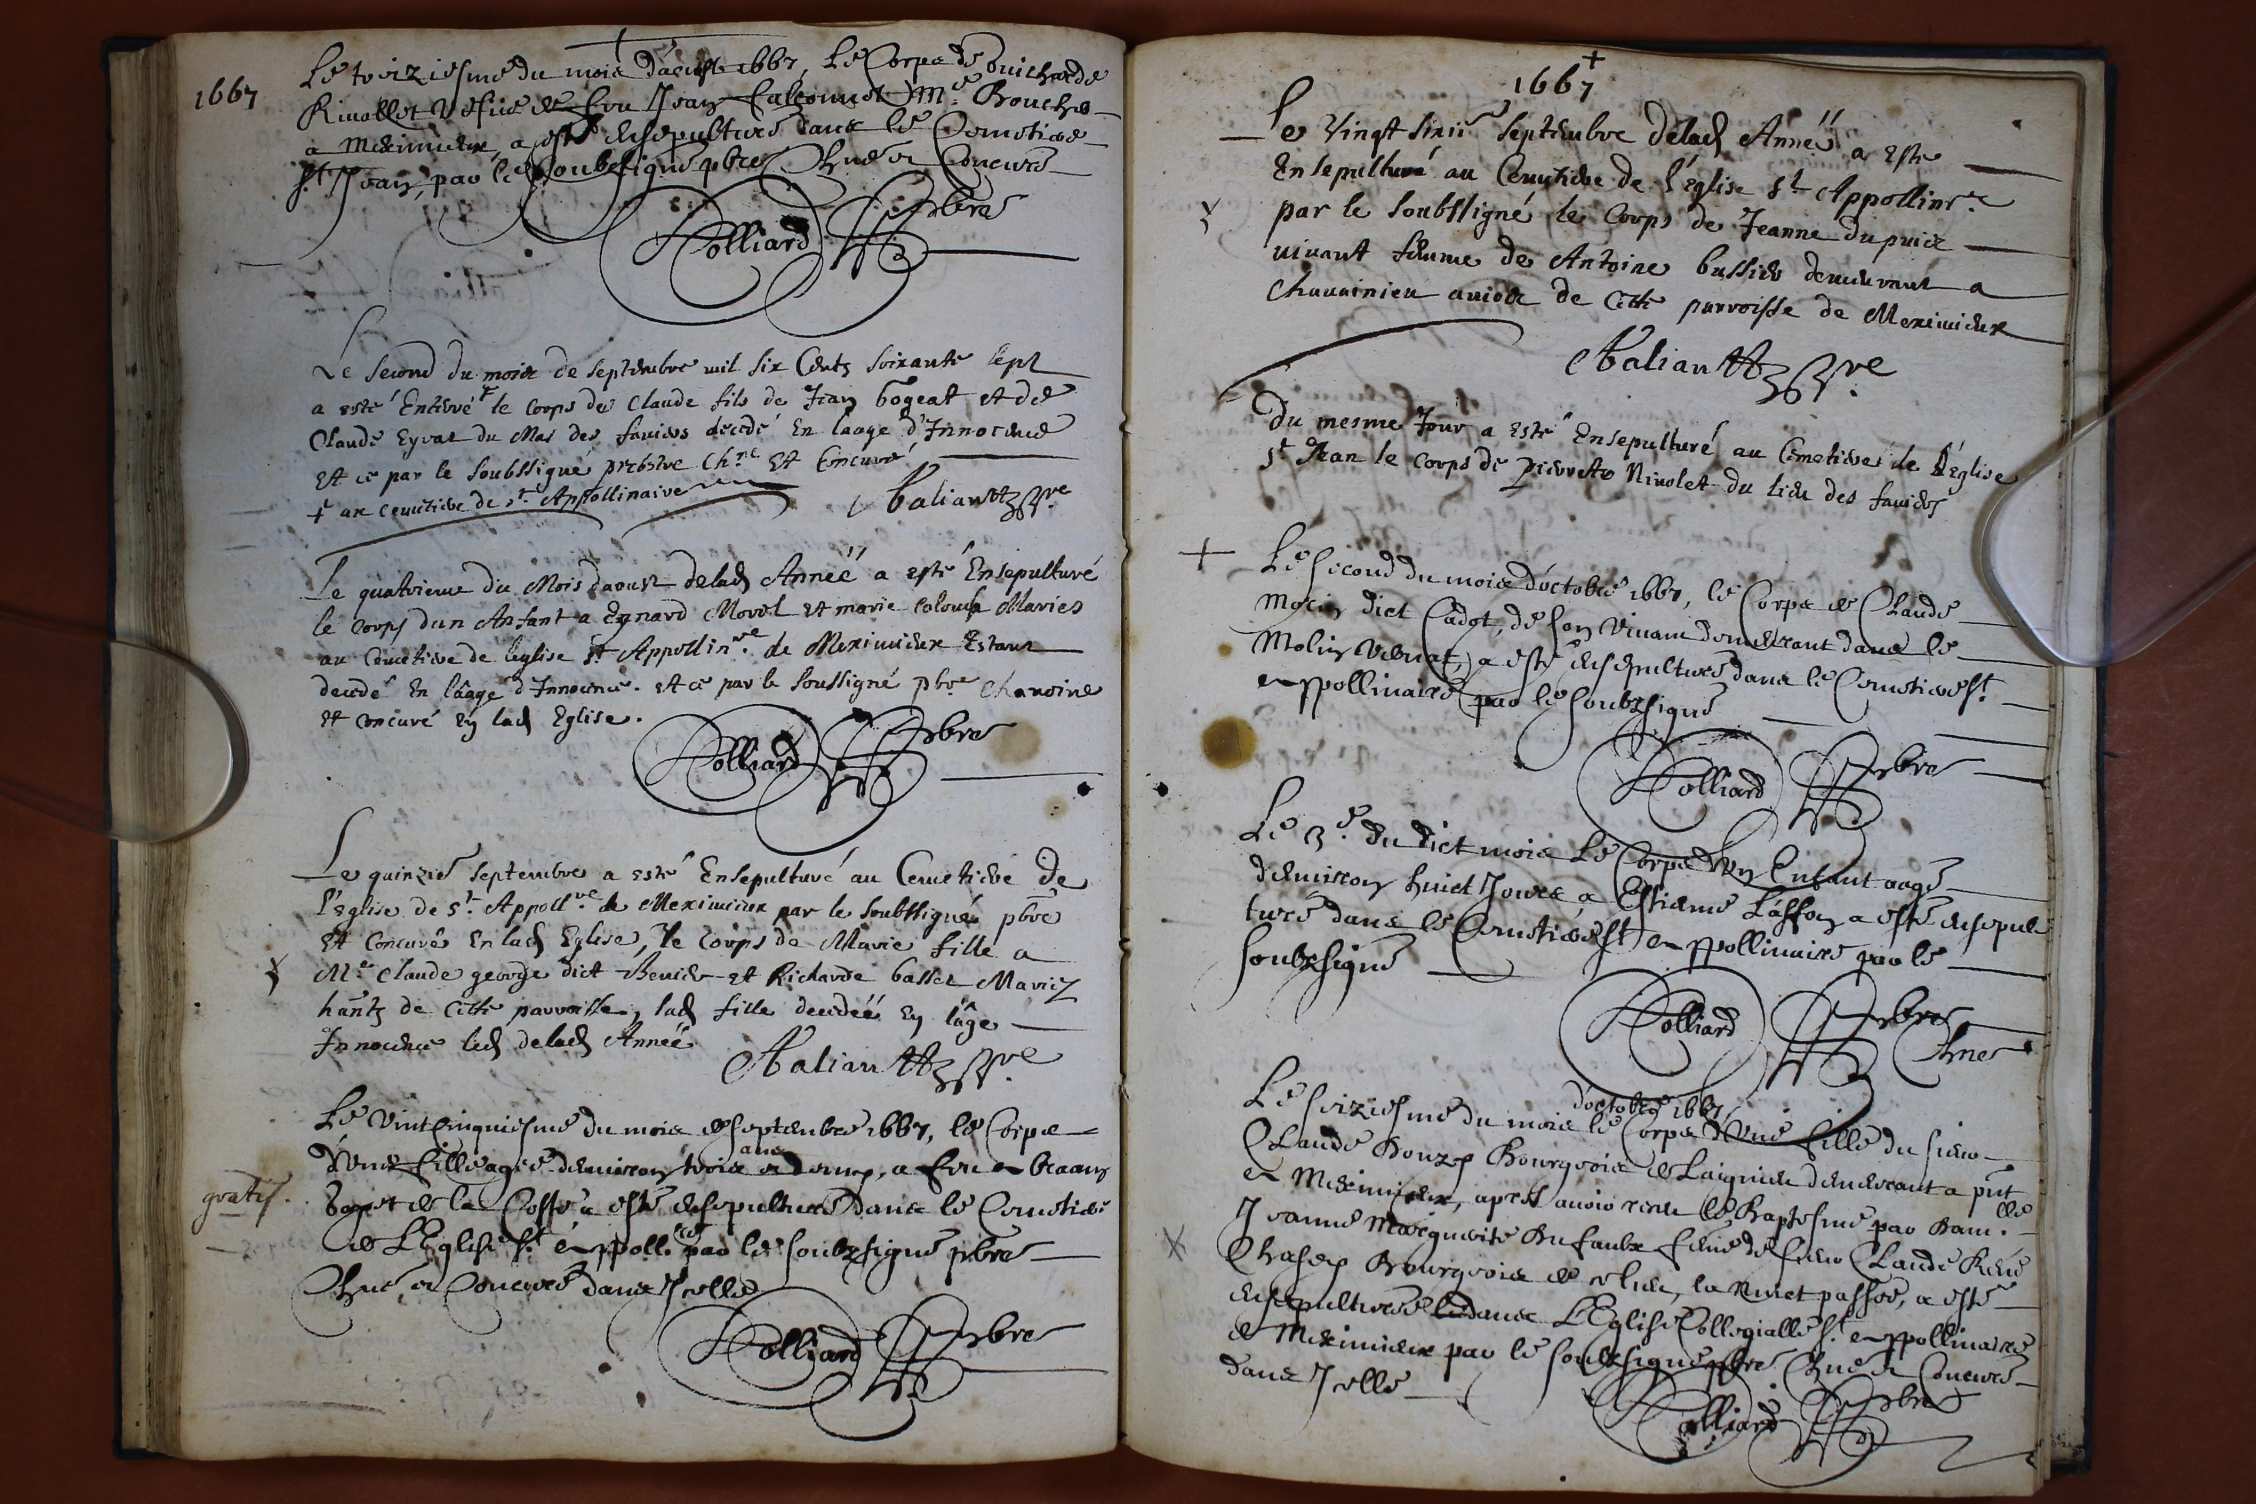 1667
Le treiziesme du mois d'aoust 1667, Le Corps de Guicharde
Rivollet Vefue de feu Jean Falconnet Me. Boucher
a Meximieux, a esté ensepulturé dans le Cemetiere
St. Jean, par le Soubsigné pbre Chne et Concuré
Rolliard pbre
Le second du mois de septembre mil six Cents soixante sept
a esté Enterré + le Corps de Claude fils de Jean bogeat et de
Claude Eyrat du Mas des faviers decedé En laage d'Innocence
Et ce par le soubssigné prebstre Chne Et Concuré
+ au cemetiere de st. Appollinaire
Le quatrieme du Mois daoust delad Année a esté Ensepulturé
le Corps dun Anfant a Eynard Morel et marie Colomb Maries
au Cemetiere de leglise St Appollinre. de Meximieux Estant
decedé En lâage d'Innocence. Et ce par le soussigné pbre Chanoine
Et concuré En lad Eglise.
Rolliard pbre
Le quinzie septembre a esté Ensepulturé au Cemetiere de
l'Eglise de St. Appollre. de Meximieux par le soubssigné pbre
Et Concuré En lad Eglise, le Corps de Marie fille a
Me Claude george dict Benier et Richarde basset Mariez
hants de Cette parroisse, lad fille decedéé En lâge
Innocence led delad Année
Le Vintcinquiesme du mois de septembre 1667, le Corps
d'Une fille agee denviron trois ans et demy, a feu
de la Coste a esté ensepulturé dans le Cemetiere
gratis.
de L'Eglise St. Appollre. par le soubsigné pbre
Chne, et Concuré dans Icelle
Rolliard pbre
1667
Le Vingt sixie septembre delad Année a Esté
Ensepulturé au Cemetiere de l'Eglise St Appollinre.
par le soubssigné le Corps de Jeanne dupuis
vivant femme de Antoine bussier demeurant a
de Cette parroisse de Meximieux
Du mesme Jour a esté Ensepulturé au Cemetiere de l'Eglise
St Jean le Corps de Pierrette Nivolet du lieu des faviers
Le second du mois d'octobre 1667, le Corps de Claude
Morin dict Cadot, de son Vivant demeurant dans le
Molin a esté ensepulturé dans le Cemetiere St.
Appollinaire par le soubsigné
Rolliard pbre
Le 3e. du dict mois Le Corps d'Un Enfant aagé
denviron huict Jours, a Estienne Lasson a esté ensepul
turé dans le Cemetiere St Appollinaire par le
soubsigné
Rolliard pbre
Chne
Le seiziesme du mois d'octobre 1667, le Corps d'Une fille du sieur
Claude Bourgeois de Laignieu demeurant a pnt
a Meximieux, apres avoir receu le Baptesme par Damlle.
Jeanne Marguerite Dufaulx feme de sieur Claude René
Chasey Bourgeois de ce lieu, la nuict passee, a esté
ensepulturée dans L'Eglise Collegialle St. Appollinaire
de Meximieux par le soubsigné pbre Chne et Concuré
dans Icelle
Rolliard pbre